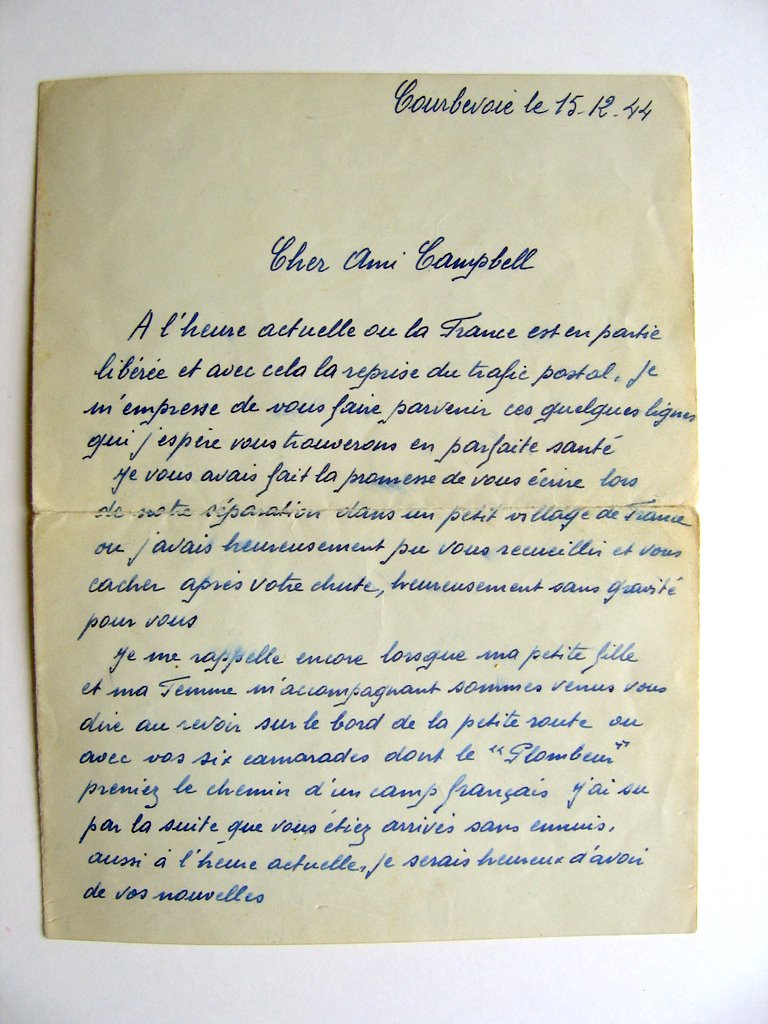 Courbevoie le 15-12-44
Cher Ami Campbell
A l'heure actuelle ou la France est en partie
libérée et avec cela la reprise du trafic postal, je
m'empresse de vous faire parvenir ces quelques lignes
qui j'espère vous trouverons en parfaite santé
Je vous avais fait la promesse de vous écrire lors
de notre séparation dans un petit village de France
ou j'avais heureusement pu vous recueillir et vous
cacher après votre chute, heureusement sans gravité
pour vous
Je me rappelle encore lorsque ma petite fille
et ma Femme m'accompagnant sommes venus vous
dire au revoir sur le bord de la petite route ou
avec vos six camarades dont le "Plombeur"
preniez le chemin d'un camp français j'ai su
par la suite que vous étiez arrivés sans ennuis,
aussi à l'heure actuelle, je serais heureux d'avoir
de vos nouvelles